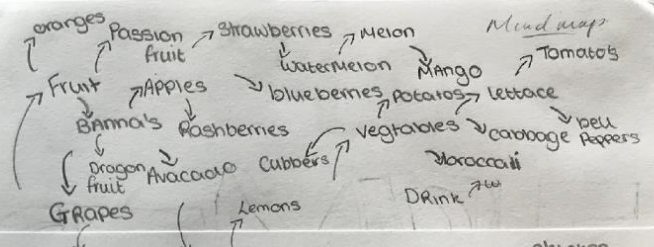 Mind maps
oranges
Passion
fruit
Strawberries
Melon
Watermelon
MAngo
Tomato's
Fruit
Apples
blueberries
Potatos
lettace
BAnna's
Rashberries
Vegtables
cabbage
bell
Peppers
Dragon
fruit
Avacado
Cubbers
broccaii
GRApes
Lemons
DRink